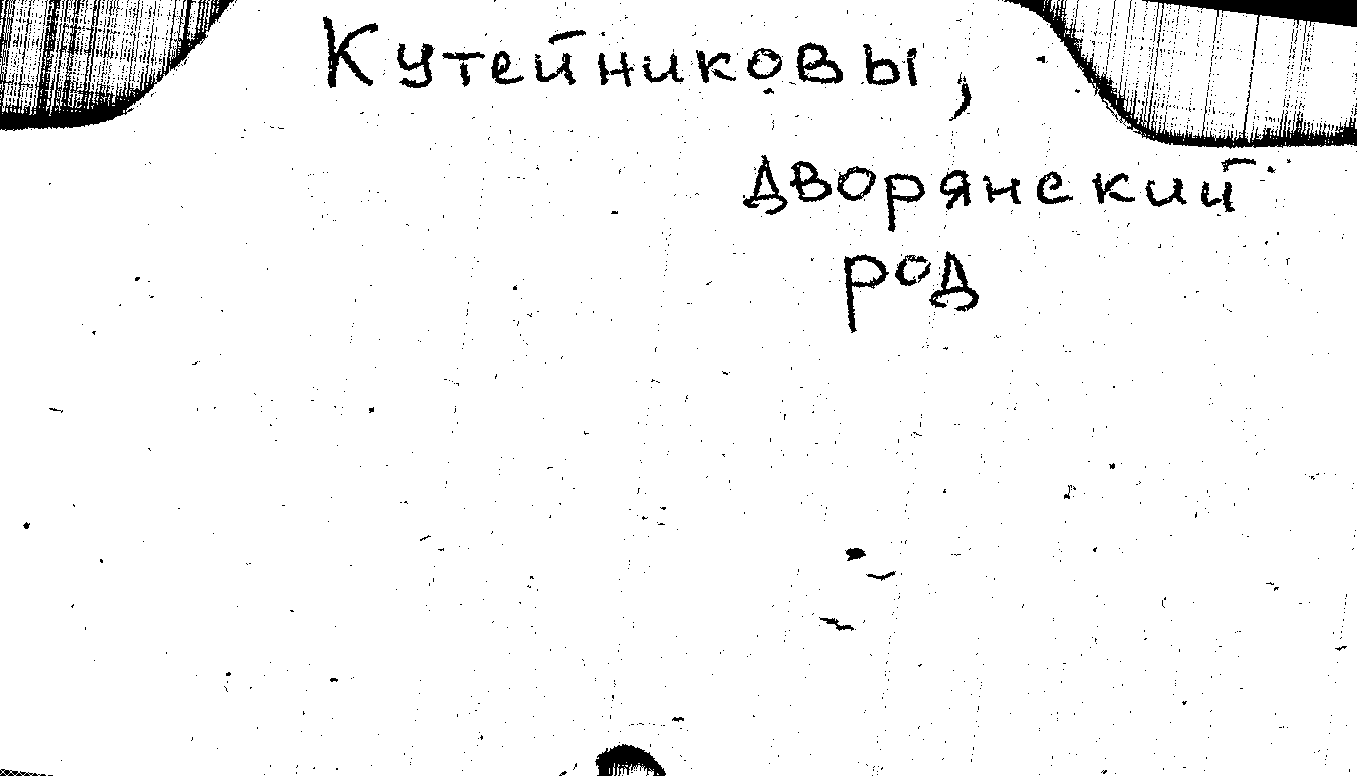 Кутейниковы,
дворянский
род